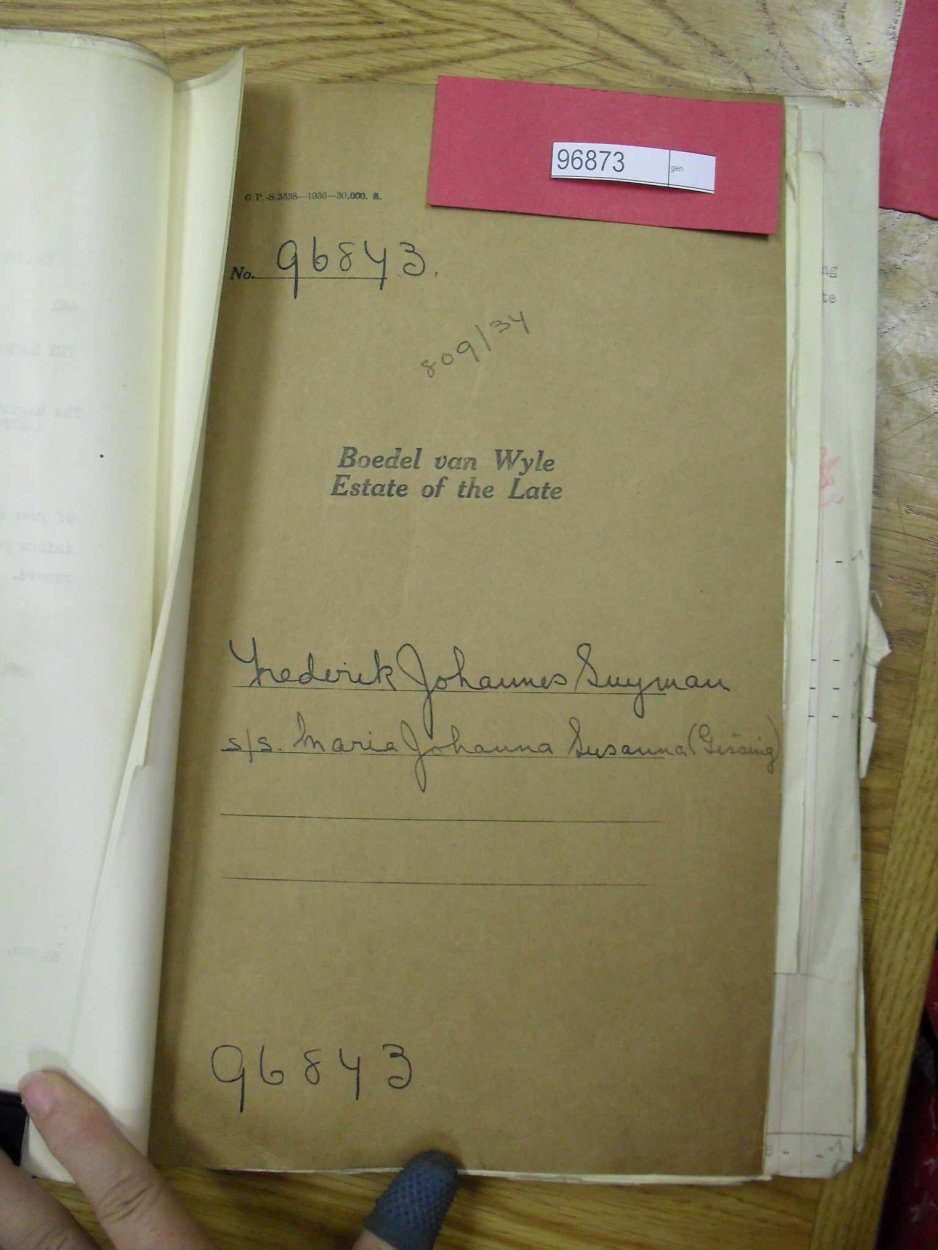 96873 gen
G.P.-S.3538—1936—30,000. S.
No. 96843.
809/34
Boedel van Wyle
Estate of the Late
Frederik Johannes Snyman
s/s. Maria Johanna Susanna
96843
ng
te